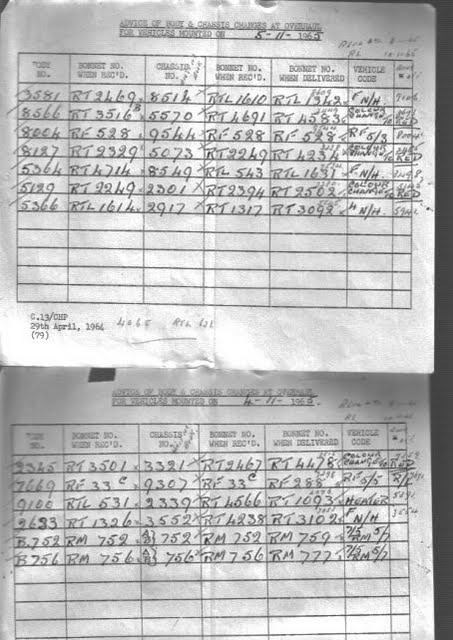 ADVICE OF BODY & CHASSIS CHANGES AT OVERHAUL
FOR VEHICLES MOUNTED ON 5-11-1965
BODY NO. BONNET NO. WHEN REC'D. CHASSIS NO. BONNET NO. WHEN REC'D. BONNET NO. WHEN DELIVERED VEHICLE CODE
3581 RT 2469 8514 RTL 1610 RTL 1342 F N/H.
8566 RT 3516 5570 RT 4691 RT 4583 COLOUR CHANGE TO RED
8004 RF 528 9544 RF 528 RF 528 RF 5/3
8127 RT 2329 5073 RT 2249 RT 4234 COLOUR CHANGE TO RED
5364 RT 4714 8549 RTL 543 RTL 1631 F N/H.
5129 RT 2249 2301 RT 2394 RT 2502 COLOUR CHANGE TO RED
5366 RTL 1614 2917 RT 1317 RT 3092 N/H.
C.13/CHP
29th April, 1964
(79)
ADVICE OF BODY & CHASSIS CHANGES AT OVERHAUL
FOR VEHICLES MOUNTED ON 4-11-1965.
BODY NO. BONNET NO. WHEN REC'D. CHASSIS NO. BONNET NO. WHEN REC'D. BONNET NO. WHEN DELIVERED VEHICLE CODE
2345 RT 3501 3321 RT 2467 RT 4478 COLOUR CHANGE TO RED
7669 RF 33 C 9307 RF 33 C RF 288 RF 5/5
9100 RTL 531 2339 RT 4566 RT 1093 HEATER
2623 RT 1326 3552 RT 4238 RT 3102 F N/H
B752 RM 752 752 RM 752 RM 759 7/5 RM 5/7
B756 RM 756 756 RM 756 RM 777 7/5 RM 5/7